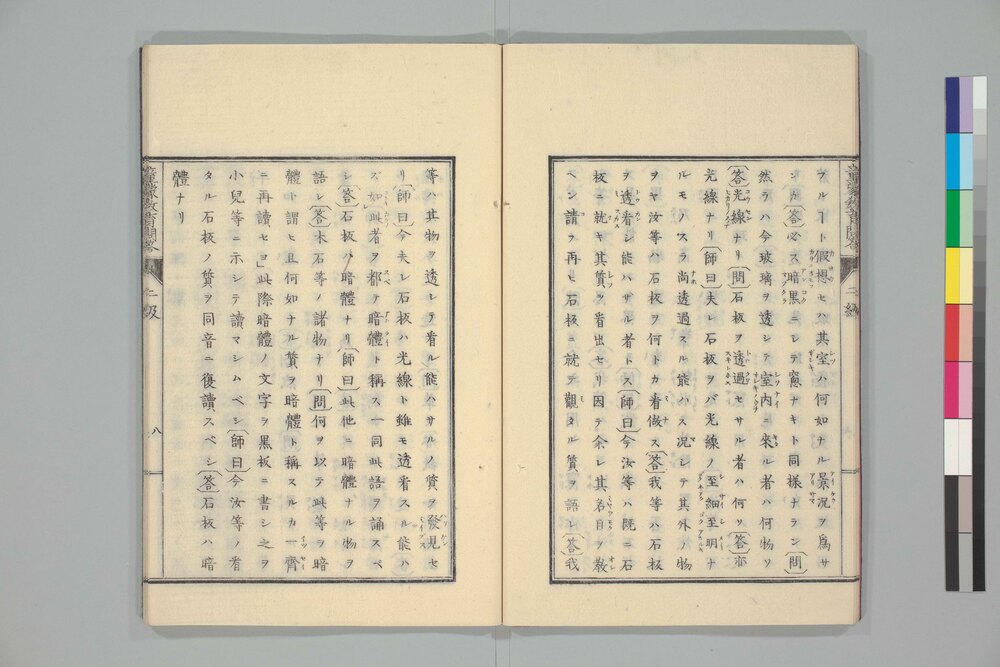 フルヿト假想セハ其室ハ何如ナル景況ヲ爲サ
シカ〔答〕必ス暗黒ニシテ窻ナキト同樣ナラン〔問〕
然ラハ今玻璃ヲ透シテ室内ニ來ル者ハ何物ソ
〔答〕光線ナリ〔問〕石板ヲ透過セサル者ハ何ソ〔答〕亦
光線ナリ〔師曰〕夫レ石板ヲバ光線ノ至細至明ナ
ルモノスラ尚透過スル能ハス况シテ其外ノ物
ヲヤ汝等ハ石板ヲ何トカ看做ス〔答〕我等ハ石板
ヲ透看シ能ハサル者トス〔師曰〕今汝等ハ既ニ石
板ニ就キ其質ヲ看出セリ因テ余レ其名目ヲ教
ヘン請フ再ヒ石板ニ就テ觀タル質ヲ語レ〔答〕我
等ハ其物ヲ透シテ看ル能ハサルノ質ヲ發見セ
リ〔師曰〕今夫レ石板ハ光線ト雖モ透看スル能ハ
ズ如此者ヲ都テ暗體ト稱ス一同此語ヲ誦スベ
シ〔答〕石板ハ暗體ナリ〔師曰〕此他ニ暗體ナル物ヲ
語レ〔答〕木石等ノ諸物ナリ〔問〕何ヲ以テ此等ヲ暗
體ト謂ヒ且何如ナル質ヲ暗體ト稱スルカ一齊
ニ再讀セヨ」此際暗體ノ文字ヲ黒板ニ書シ之ヲ
小兒等ニ示シテ讀マシムベシ〔師曰〕今汝等ノ看
タル石板ノ質ヲ同音ニ復讀スベシ〔答〕石板ハ暗
體ナリ
二級
八